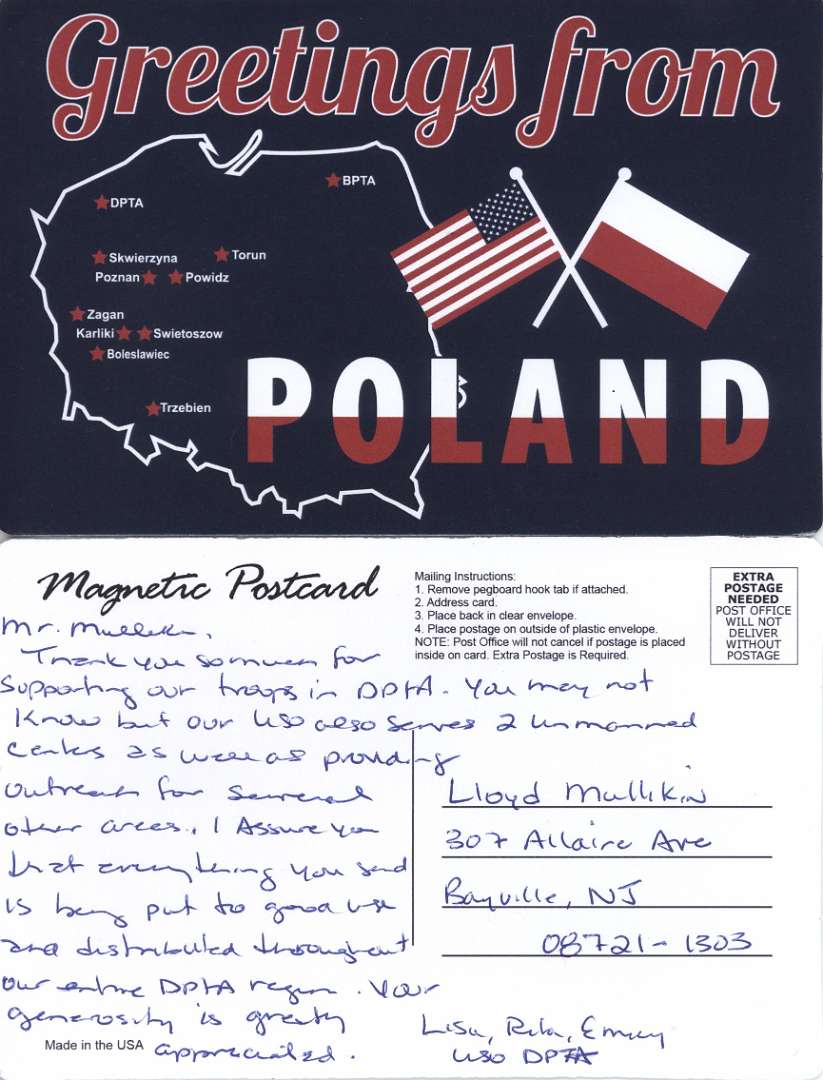 Greetings from
BPTA
DPTA
Skwierzyna
Torun
Poznan
Powidz
Zagan
Karliki
Swietoszow
Boleslawiec
Trzebien
POLAND
Magnetic Postcard
Mailing Instructions:
1. Remove pegboard hook tab if attached.
2. Address card.
3. Place back in clear envelope.
4. Place postage on outside of plastic envelope.
NOTE: Post Office will not cancel if postage is placed
inside on card. Extra Postage is Required.
EXTRA
POSTAGE
NEEDED
POST OFFICE
WILL NOT
DELIVER
WITHOUT
POSTAGE
Mr. Mullikin,
Thank you so much for
supporting our troops in DPTA. You may not
know but our USO also serves 2 unmanned
centers as well as providing
outreach for several
other areas. I Assure you
that everything you send
is being put to good use
and distributed throughout
our entire DPTA region. Your
generosity is greatly
appreciated.
Lloyd Mullikin
307 Allaire Ave
Bayville, NJ
08721-1303
Lisa, Rita, Emily
USO DPTA
Made in the USA